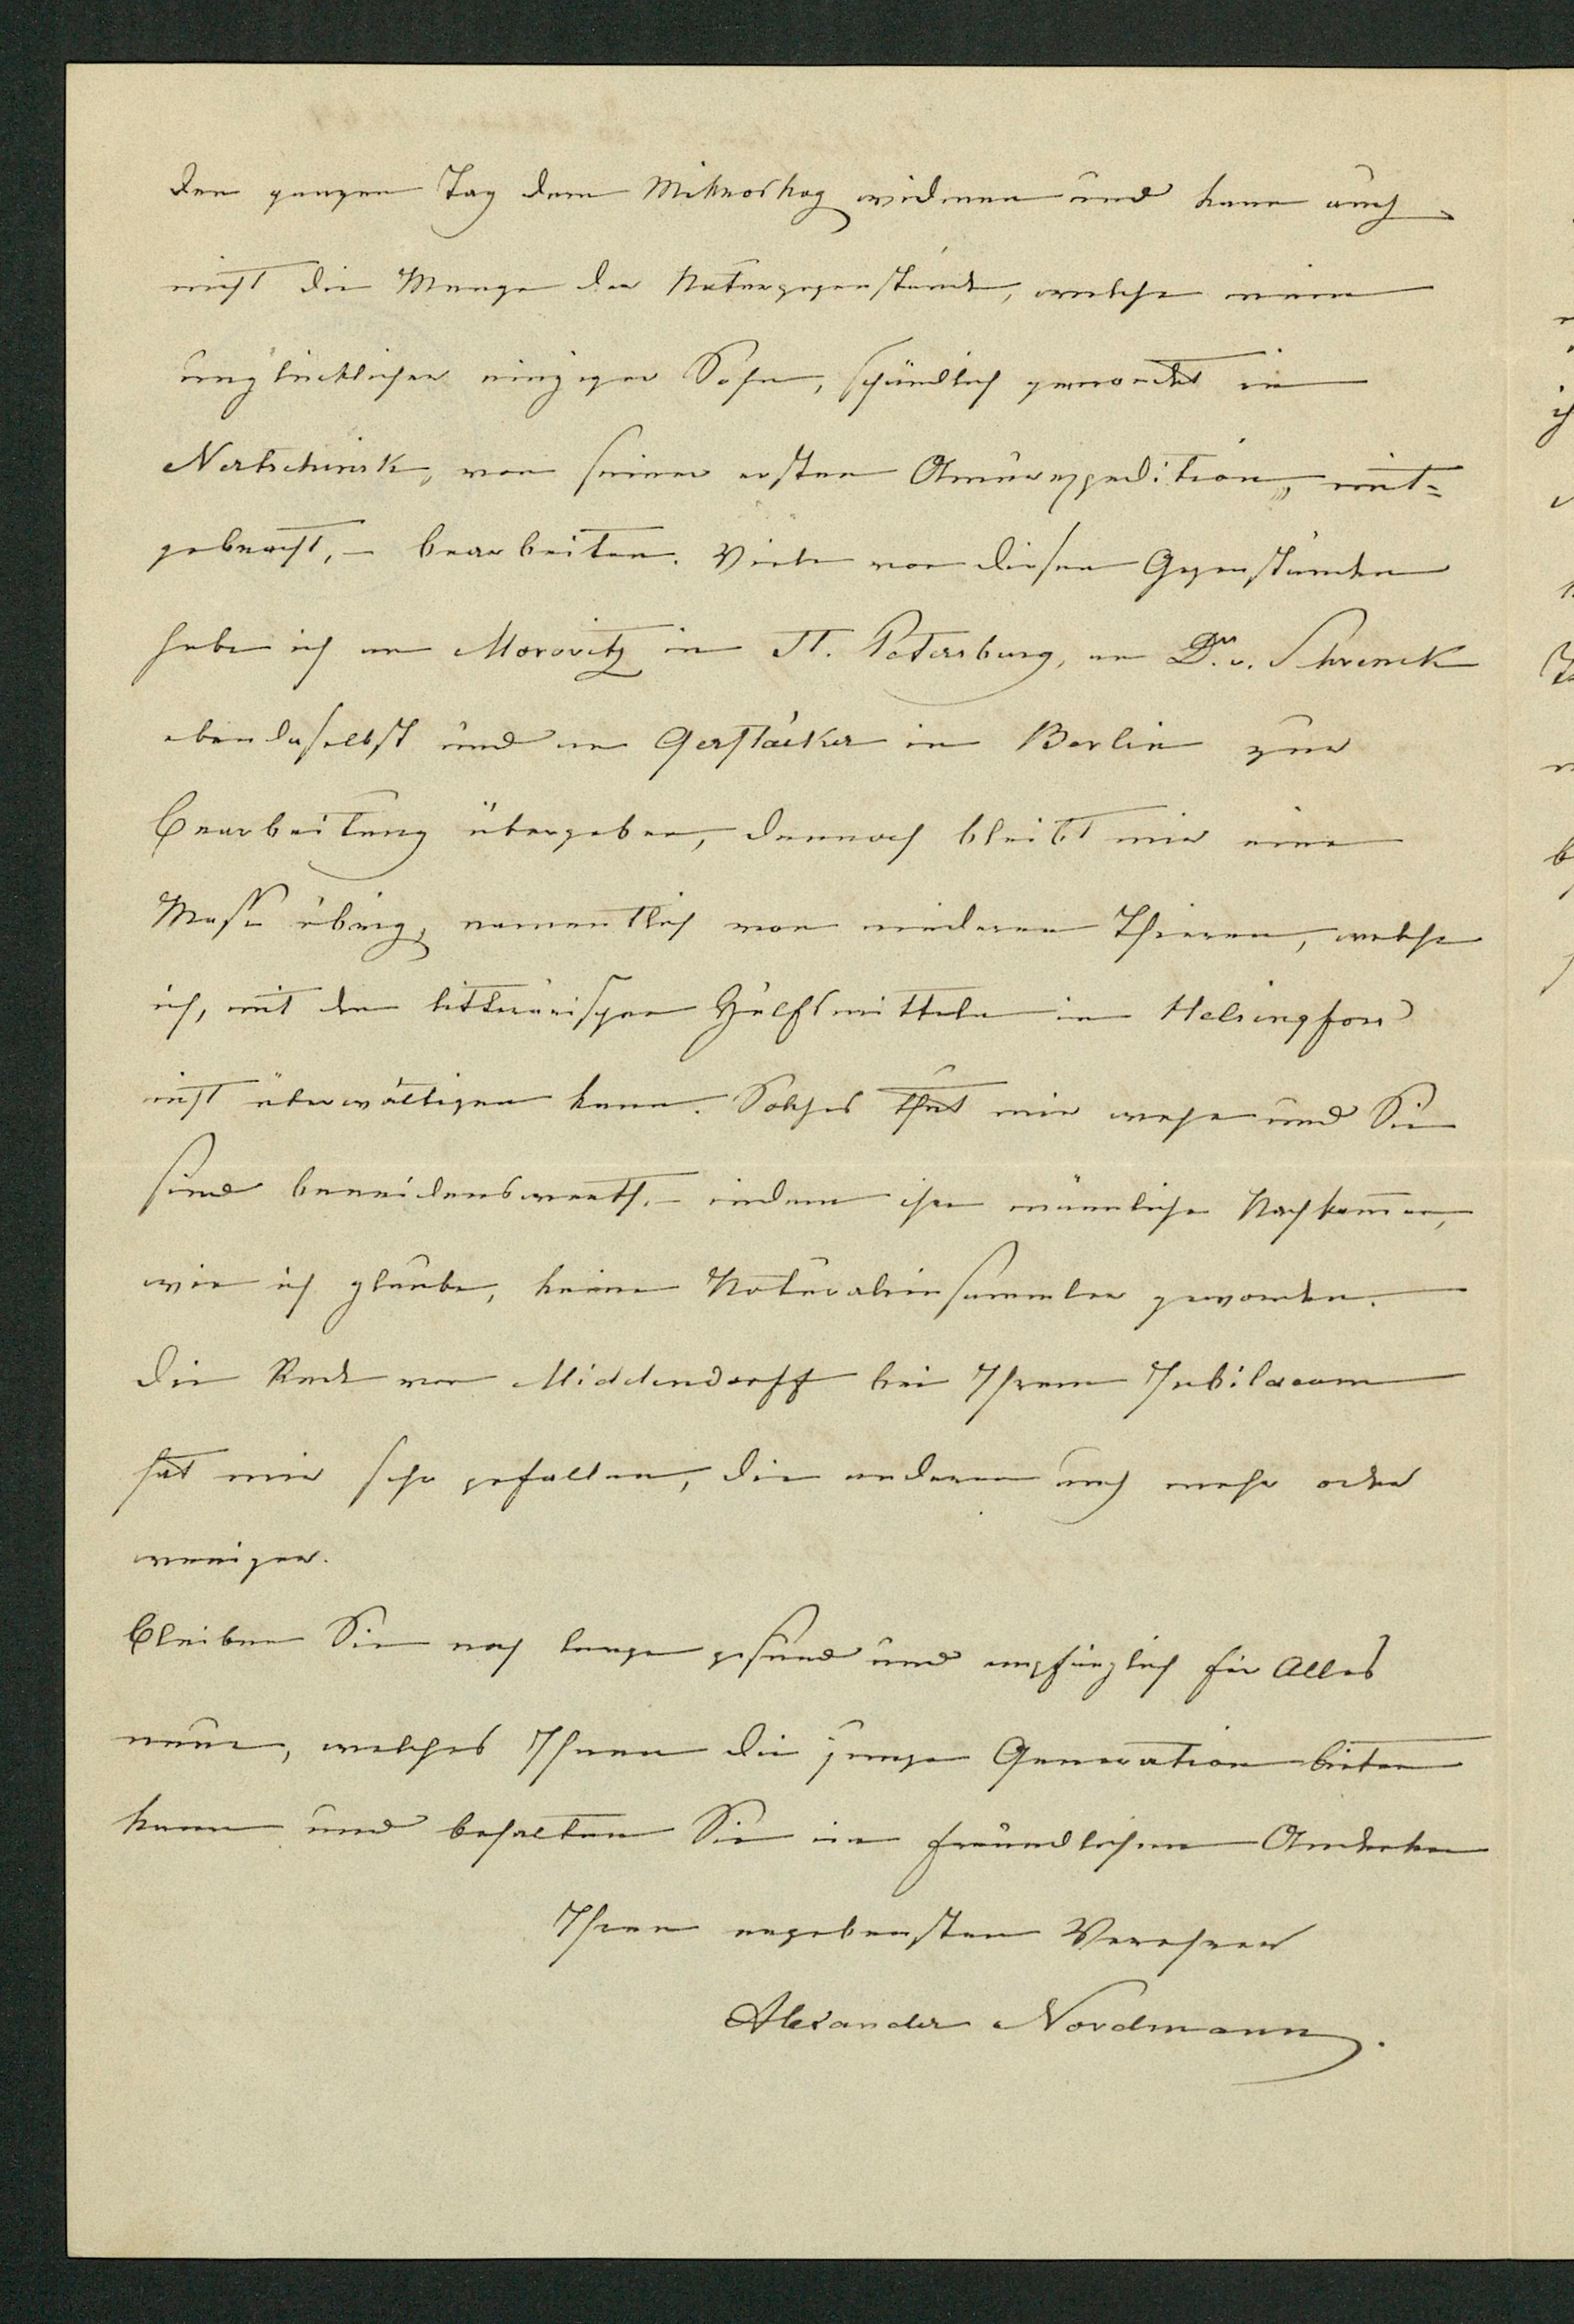 den ganzen Tag dem Mikroskop widmen und kann auch
nicht die Menge der Naturgegenstände, welche mein
unglücklicher einziger Sohn, schändlich gemordet in
Nertschinsk, von seiner ersten Amurexpedition, mit=
gebracht, – bearbeiten. Viele von diesen Gegenständen
habe ich an Morovitz in St. Petersburg, an Dr. v. Schrenck
ebendaselbst und an Gerstäcker in Berlin zur
Bearbeitung übergeben, dennoch bleibt mir eine
Masse übrig, namentlich von niederen Thieren, welche
ich, mit den litterärischen Hülfsmitteln in Helsingfors
nicht überwältigen kann. Solches thut mir wehe und Sie
sind beneidenswerth, – indem ihre männliche Nachkommen,
wie ich glaube, keine Naturaliensammler geworden.
Die Rede von Middendorff bei Ihrem Jubilaeum
hat mir sehr gefallen, die anderen auch mehr oder
weniger.
Bleiben Sie noch lange gesund und empfänglich für Alles
neue, welches Ihnen die junge Generation bieten
kann und behalten Sie im freundlichem Andenken
Ihren ergebensten Verehrer
Alexander Nordmann.